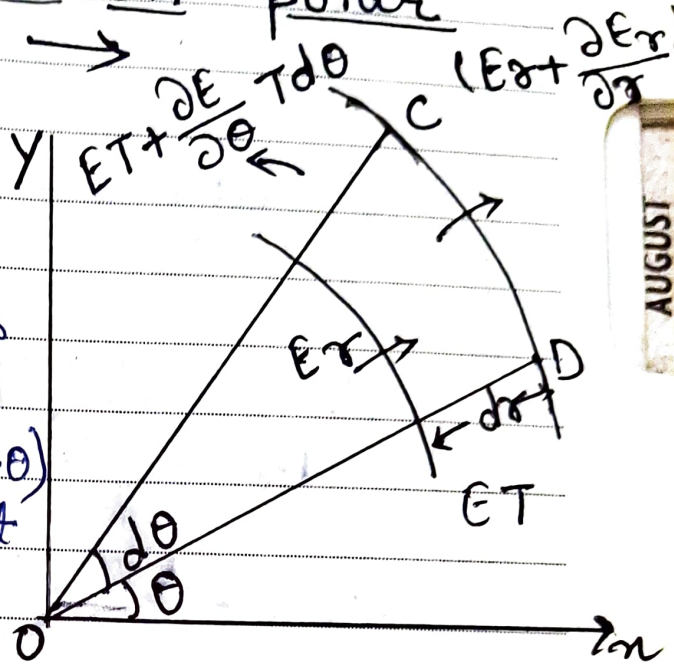 polar
ET + ∂E/∂θ T dθ
(Er + ∂Er/∂r
Y
C
AUGUST
Er
D
dr
θ)
ET
t
dθ
θ
O
x